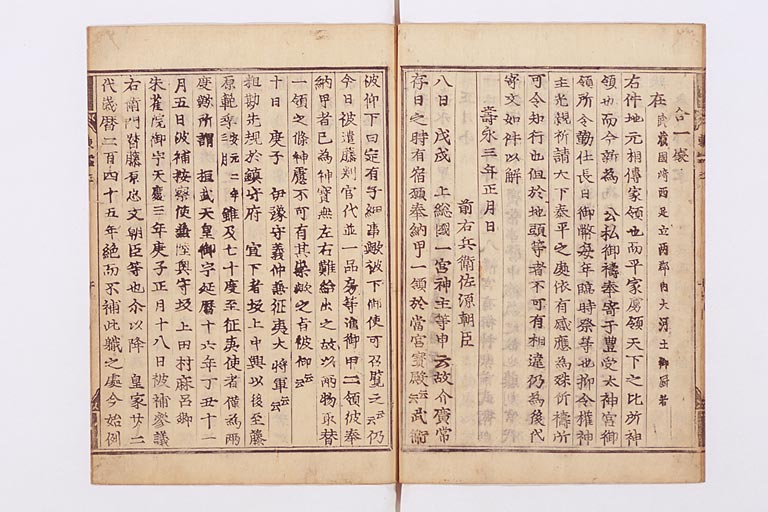 合一処
在 武蔵国埼西足立両郡内大河土御厨者
右件地元相傳家領也而平家虜領天下之比所神
領也而今新為 公私御禱奉寄于豊受太神宮御
領所令勤仕長日御幣毎年臨時祭等也抑令權神
主光親祈請天下泰平之處依有感應為殊祈禱所
可令知行也但於地頭等者不可有相違仍為後代
寄文如件以解
壽永三年正月日
前右兵衛佐源朝臣
八日 戊戌 上総國一宮神主等申云故介廣常
存日之時有宿願奉納甲一領於當宮寶殿云云武衛
被仰下曰定有子細事歟被下御使可召覧之云云仍
今日被遣藤判官代並一品房等進御甲二領彼奉
納甲者已為神寶無左右難給出之故以両物取替
一領之條神慮不可有其祟歟之旨被仰云云
十日 庚子 伊豫守義仲兼征夷大將軍云云
粗勘先規於鎮守府 宣下者坂上中興以後至藤
原範季安元二年雖及七十度至征夷使者僅為両
度歟所謂 桓武天皇御宇延曆十六年丁丑十一
月五日被補按察使兼陸奥守坂上田村麻呂卿
朱雀院御宇天慶三年庚子正月十八日被補參議
右衛門督藤原忠文朝臣等也尓以降 皇家廿二
代歳暦二百四十五年絶而不補此職之處今始例